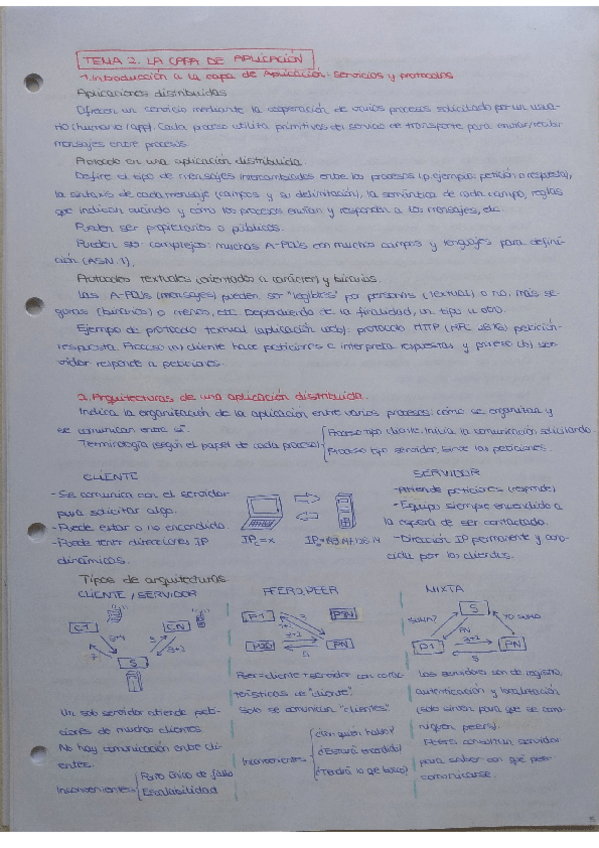 TEMA 2. LA CAPA DE APLICACIÓN
1. Introducción a la capa de Aplicación: servicios y protocolos
Aplicaciones distribuidas
Ofrecen un servicio mediante la cooperación de varios procesos solicitado por un usua-
rio (humano/app). Cada proceso utiliza primitivas del servicio de transporte para enviar/recibir
mensajes entre procesos.
Protocolo en una aplicación distribuida.
Define el tipo de mensajes intercambiados entre los procesos (p.ejemplo: petición o respuesta),
la sintaxis de cada mensaje (campos y su delimitación), la semántica de cada campo, reglas
que indican cuándo y cómo los procesos envían y responden a los mensajes, etc.
Pueden ser propietarios o públicos.
Pueden ser complejos: muchas A-PDUs con muchos campos y lenguajes para defini-
ción (ASN.1).
Protocolos textuales (orientados a carácter) y binarios.
Las A-PDUs (mensajes) pueden ser "legibles" por personas (textual) o no, más se-
guras (binarios) o menos, etc. Dependiendo de la finalidad, un tipo u otro.
Ejemplo de protocolo textual (aplicación web): protocolo HTTP petición-
respuesta. Proceso (a) cliente hace peticiones e interpreta respuestas y proceso (b) ser-
vidor responde a peticiones.
2. Arquitecturas de una aplicación distribuida.
Indica la organización de la aplicación entre varios procesos: cómo se organizan y
se comunican entre sí.
Terminología (según el papel de cada proceso)
Proceso tipo cliente. Inicia la comunicación solicitando.
Proceso tipo servidor. las peticiones.
CLIENTE
- Se comunica con el servidor
para solicitar algo.
- Puede estar o no encendido.
- Puede tener direcciones IP
dinámicas.
IPc = x
SERVIDOR
- Atiende peticiones (responde)
- Equipo siempre encendido a
la espera de ser contactado.
- Dirección IP permanente y cono-
cida por los clientes.
Tipos de arquitecturas
CLIENTE / SERVIDOR
C1
CN
S
Un solo servidor atiende peti-
ciones de muchos clientes.
No hay comunicación entre cli-
entes.
Inconvenientes
Punto único de fallo
Escalabilidad
PEER2PEER
P1
PN
Peer = cliente + servidor con carac-
terísticas de "cliente"
Solo se comunican "clientes"
Inconvenientes
¿Con quién hablo?
¿Estará encendido?
¿Tendrá lo que busco?
MIXTA
S
P1
PN
Los servidores son de registro,
autenticación y localización
(solo sirven para que se comu-
niquen peers).
Peers consultan servidor
para saber con qué peer
comunicarse.